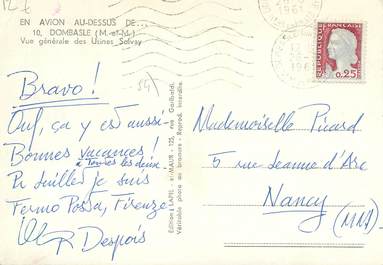 12 €
EN AVION AU-DESSUS DE...
10, DOMBASLE (M.-et-M.)
Vue générale des Usines Solvay
54
1961
RÉPUBLIQUE FRANÇAISE
0,25
Bravo!
Ouf, ça y est aussi.
Bonnes vacances!
à Toutes les deux.
Pr Juillet je suis
Fermo Posta, Firenze
R Despois
Editions LAPIE, St-MAUR - 125, rue Garibaldi
Véritable photo au bromure - Reprod. interdite
Mademoiselle Picard
5 rue Jeanne d'Arc
Nancy (MM)